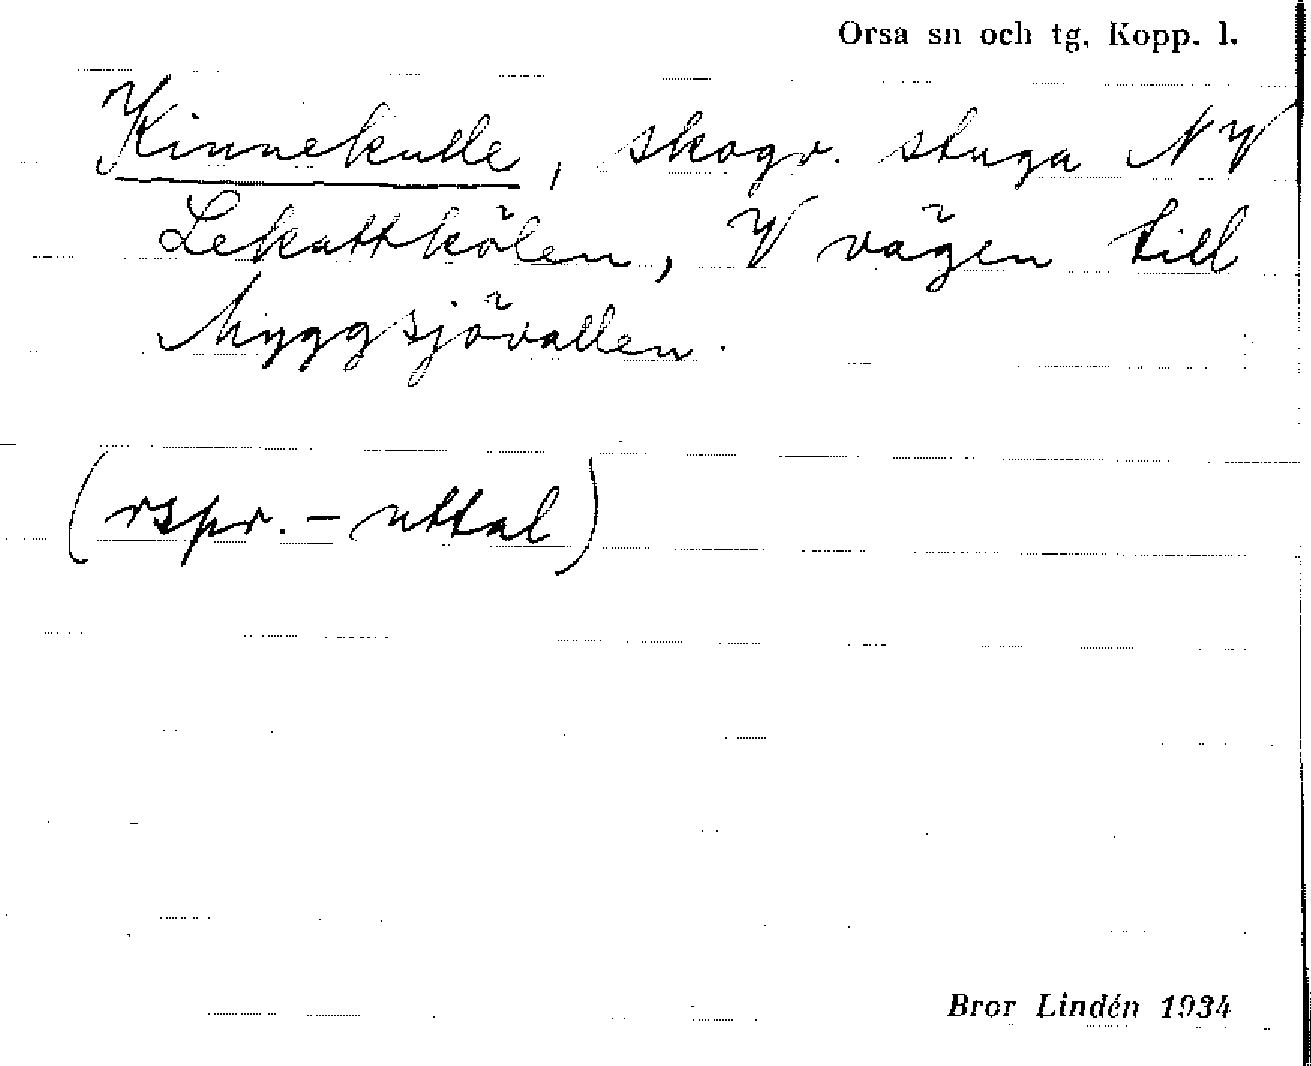 Orsa sn och tg, Kopp. l.
Kinnekulle, skogv. stuga NV
Lekattkölen, V vägen till
Myggsjövallen.
(rspr. - uttal)
Bror Lindén 1934